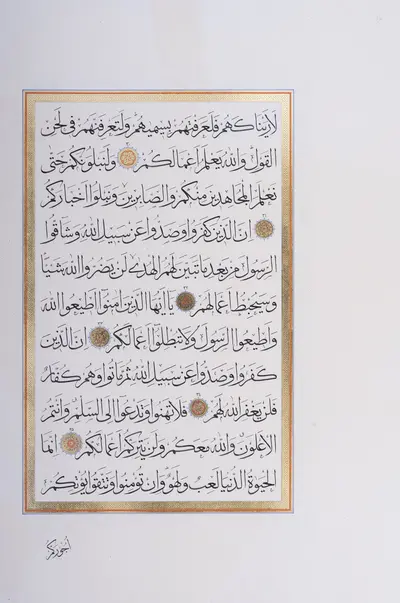 لَأَرَيْنَاكَهُمْ فَلَعَرَفْتَهُمْ بِسِيمٰيهُمْ وَلَتَعْرِفَنَّهُمْ فِي لَحْنِ
الْقَوْلِ وَاللّٰهُ يَعْلَمُ أَعْمَالَكُمْ ٣٠ وَلَنَبْلُوَنَّكُمْ حَتَّى
نَعْلَمَ الْمُجَاهِدِينَ مِنْكُمْ وَالصَّابِرِينَ وَنَبْلُوَا أَخْبَارَكُمْ
٣١ إِنَّ الَّذِينَ كَفَرُوا وَصَدُّوا عَنْ سَبِيلِ اللّٰهِ وَشَاقُّوا
الرَّسُولَ مِنْ بَعْدِ مَا تَبَيَّنَ لَهُمُ الْهُدَى لَنْ يَضُرُّوا اللّٰهَ شَيْئًا
وَسَيُحْبِطُ أَعْمَالَهُمْ ٣٢ يَا أَيُّهَا الَّذِينَ آمَنُوا أَطِيعُوا اللّٰهَ
وَأَطِيعُوا الرَّسُولَ وَلَا تُبْطِلُوا أَعْمَالَكُمْ ٣٣ إِنَّ الَّذِينَ
كَفَرُوا وَصَدُّوا عَنْ سَبِيلِ اللّٰهِ ثُمَّ مَاتُوا وَهُمْ كُفَّارٌ
فَلَنْ يَغْفِرَ اللّٰهُ لَهُمْ ٣٤ فَلَا تَهِنُوا وَتَدْعُوا إِلَى السَّلْمِ وَأَنْتُمُ
الْأَعْلَوْنَ وَاللّٰهُ مَعَكُمْ وَلَنْ يَتِرَكُمْ أَعْمَالَكُمْ ٣٥ إِنَّمَا
الْحَيٰوةُ الدُّنْيَا لَعِبٌ وَلَهْوٌ وَإِنْ تُؤْمِنُوا وَتَتَّقُوا يُؤْتِكُمْ
أُجُورَكُمْ